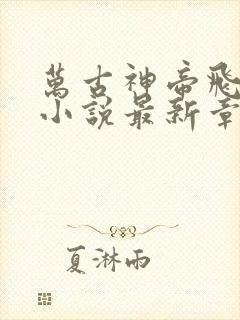 萬古神帝飛
小說最新章
夏淋雨